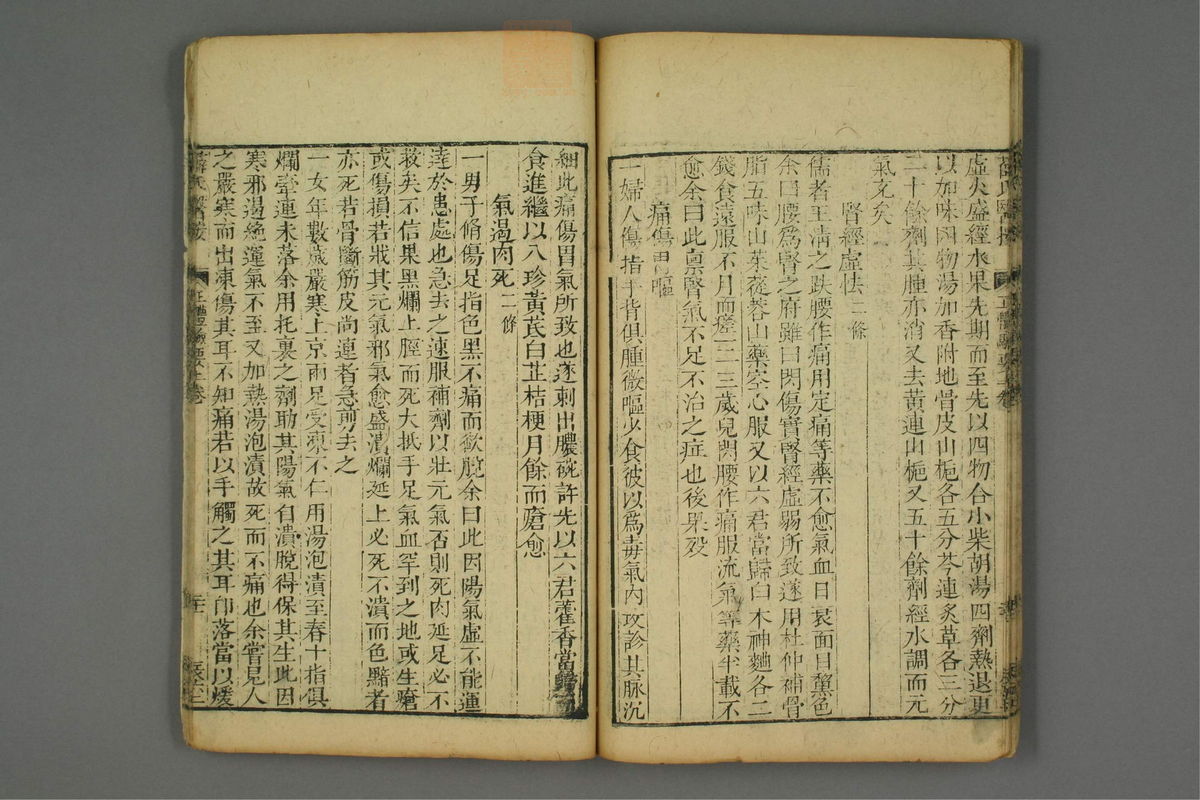 虛火盛經水果先期而至先以四物合小柴胡湯四劑熱退更
以加味四物湯加香附地骨皮山梔各五分芩連炙草各三分
二十餘劑其腫亦消又去黃連山梔又五十餘劑經水調而元
氣充矣
腎經虛怯二條
儒者王清之跌腰作痛用定痛等藥不愈氣血日衰面目黧色
余曰腰為腎之府雖曰閃傷實腎經虛弱所致遂用杜仲補骨
脂五味山茱蓯蓉山藥空心服又以六君當歸白木神麯各二
錢食遠服不月而瘥一三歲兒閃腰作痛服流氣等藥半載不
愈余曰此稟腎氣不足不治之症也後果歿
痛傷胃嘔
一婦人傷指手背俱腫微嘔少食彼以為毒氣內攻診其脉沉
細此痛傷胃氣所致也遂刺出膿碗許先以六君藿香當歸而
食進繼以八珍黃芪白芷桔梗月餘而瘡愈
氣遏肉死二條
一男子脩傷足指色黑不痛而欲脫余曰此因陽氣虛不能運
達於患處也急去之速服補劑以壯元氣否則死肉延足必不
救矣不信果黑爛上脛而死大抵手足氣血罕到之地或生瘡
或傷損若戕其元氣邪氣愈盛潰爛延上必死不潰而色黯者
亦死若骨斷筋皮尚連者急剪去之
一女年數歲嚴寒上京兩足受凍不仁用湯泡漬至春十指俱
爛牽連未落余用托裏之劑助其陽氣自潰脫得保其生此因
寒邪遏絶運氣不至又加熱湯泡漬故死而不痛也余嘗見人
之嚴寒而出凍傷其耳不知痛若以手觸之其耳卽落當以煖
薛氏醫按